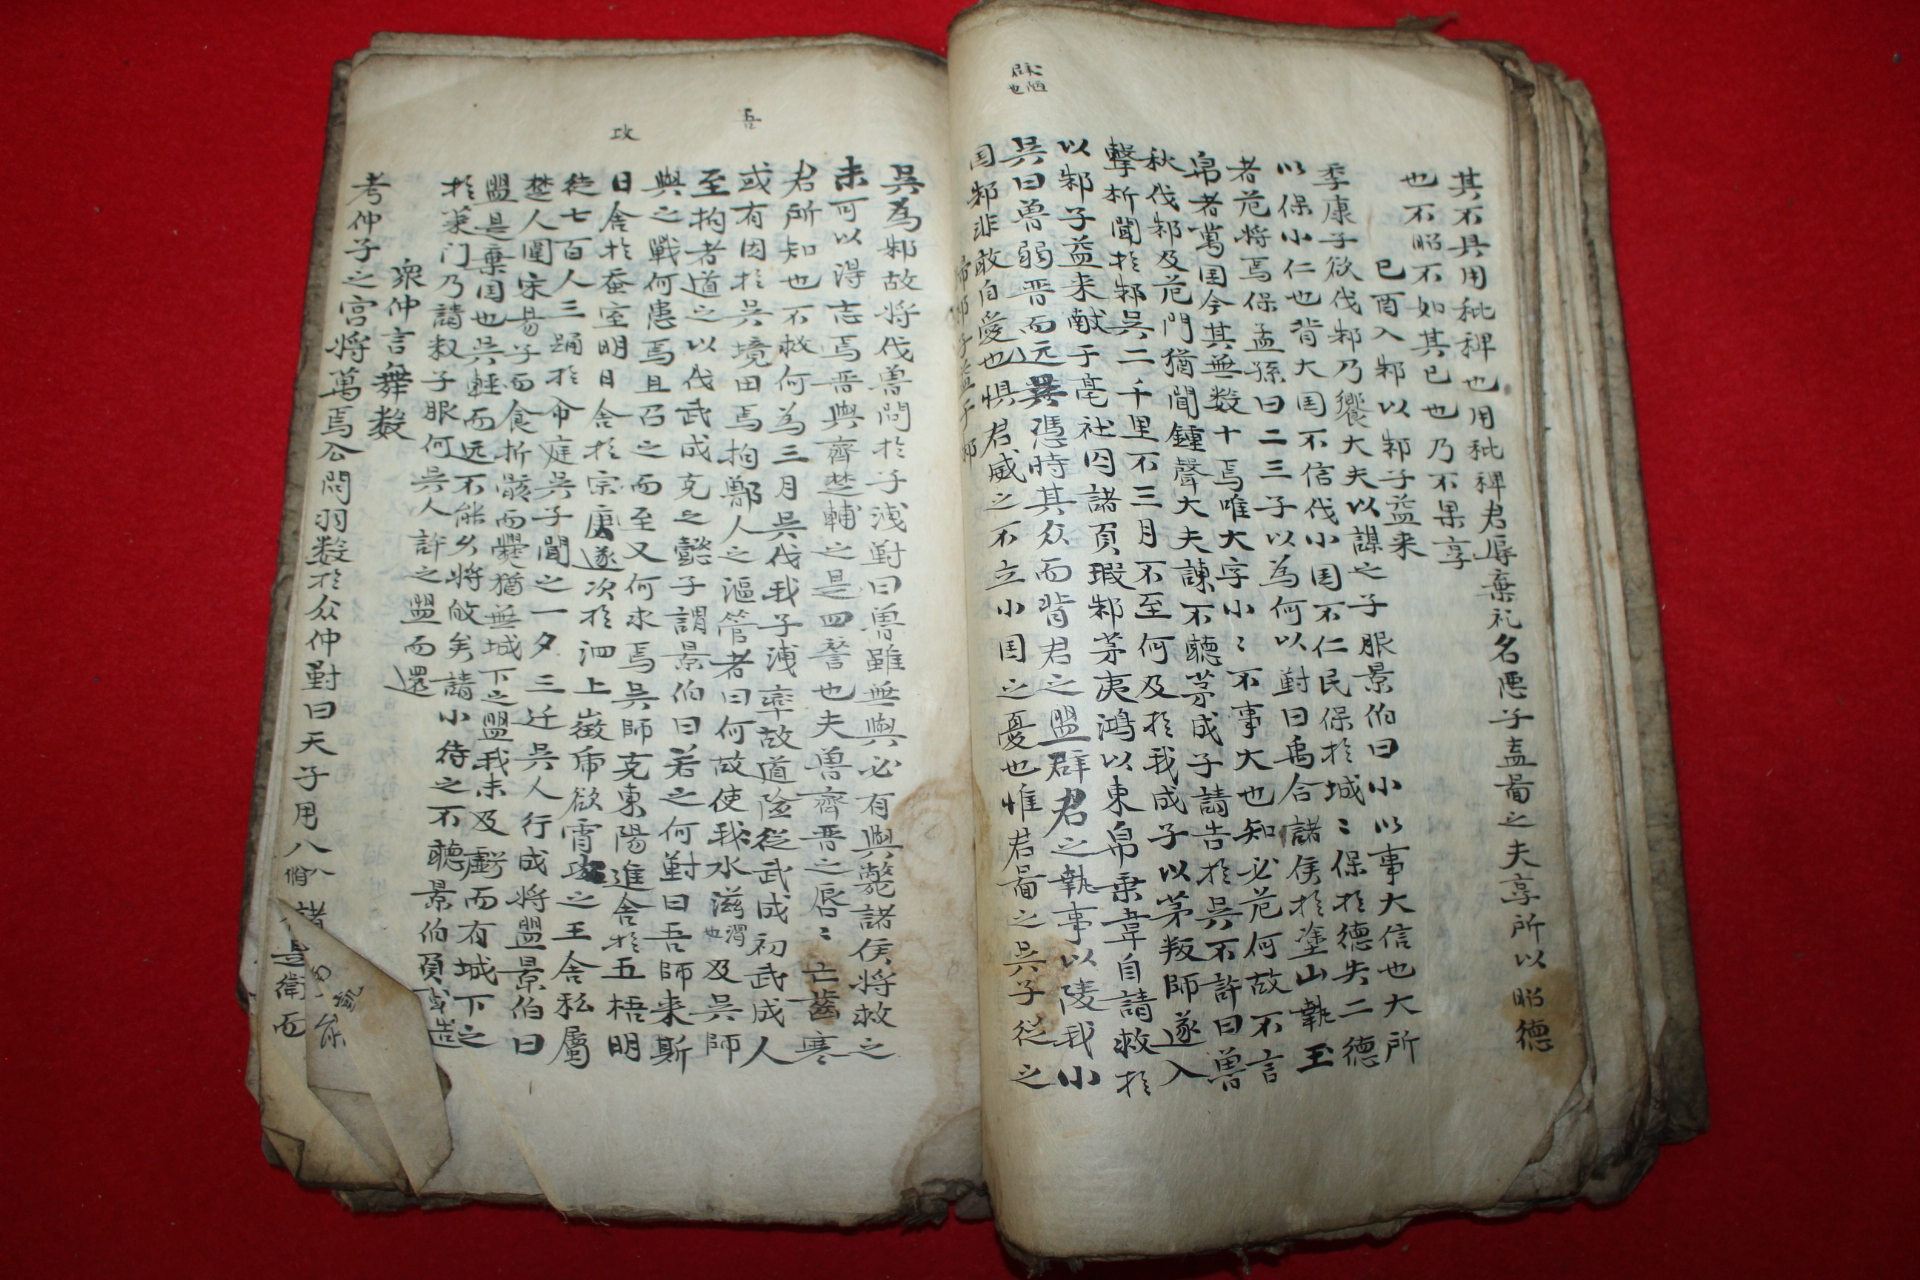 其不具用秕稗也用秕稗君辱棄礼名悪子盍啚之夫享所以昭德
也不昭不如其已也乃不果享
已酉入邾以邾子益来
季康子欲伐邾乃饗大夫以謀之子服景伯曰小以事大信也大所
以保小仁也背大国不信伐小国不仁民保於城〻保於德失二德
者危将焉保孟孫曰二三子以為何以對曰禹合諸侯於塗山執玉
帛者萬国今其無数十焉唯大字小〻不事大也知必危何故不言
秋伐邾及范門猶聞鍾聲大夫諫不聽茅成子請告於吳不許曰魯
擊析聞於邾吳二千里不三月不至何及於我成子以茅叛師遂入
以邾子益来献于亳社囚諸負瑕邾茅夷鴻以束帛乗韋自請救於
吳曰魯弱晋而远吳憑時其众而背君之盟群君之執事以陵我小
国邾非敢自愛也惧君威之不立小国之憂也惟君啚之吳子從之
陋也
吾
攻
吳為邾故将伐魯問於子洩對曰魯雖無與必有與斃諸侯将救之
未可以得志焉晋與齊楚輔之是四讐也夫魯齊晋之唇〻亡齒寒
君所知也不救何為三月吳伐我子洩率故道险從武成初武成人
或有因於吳境田焉拘鄭人之漚管者曰何故使我水滋濁也及吳師
至拘者道之以伐武成克之懿子謂景伯曰若之何對曰吾師来斯
與之戰何患焉且召之而至又何求焉吳師克東陽進舍於五梧明
日舍於蚕室明日舍於宗庚遂次於泗上微虎欲宵攻之王舍私屬
徒七百人三踊於命庭吳子聞之一夕三迁吳人行成将盟景伯曰
楚人圍宋易子而食折骸而爨猶無城下之盟我未及虧而有城下之
盟是棄国也吳輕而远不能久将皈矣請小待之不聽景伯負或造
於莱门乃請叔子服何吳人許之盟而還
衆仲言舞数
考仲子之宮将萬焉公問羽数於众仲對曰天子用八佾諸